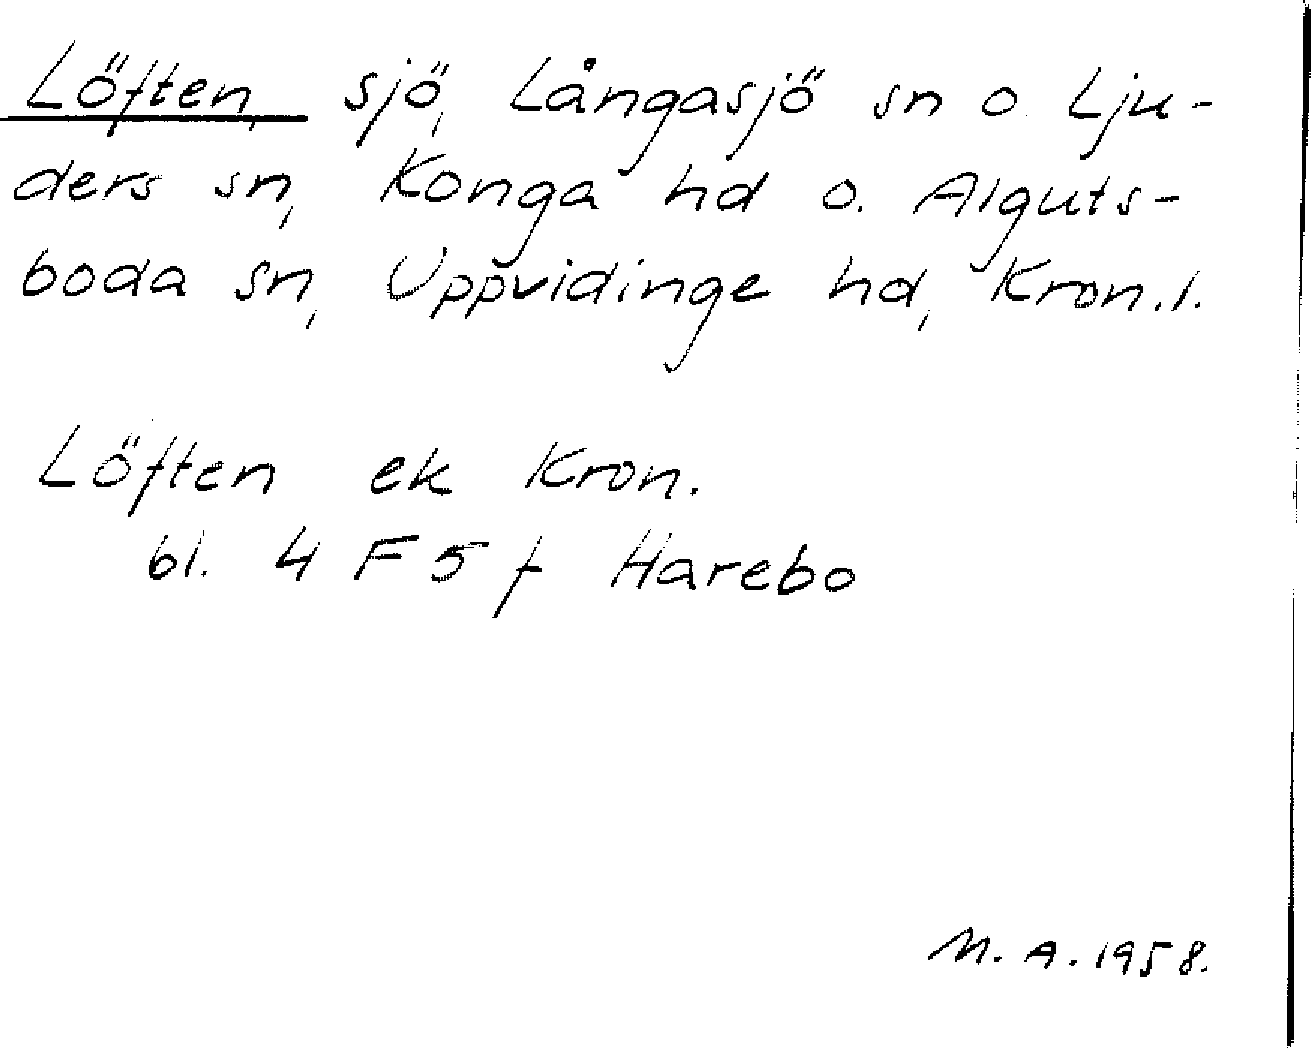 Löften, sjö, Långasjö sn o. Lju-
ders sn, Konga hd o. Alguts-
boda sn, Uppvidinge hd, Kron.l.
Löften ek Kron.
bl. 4 F 5 f Harebo
M. A. 1958.